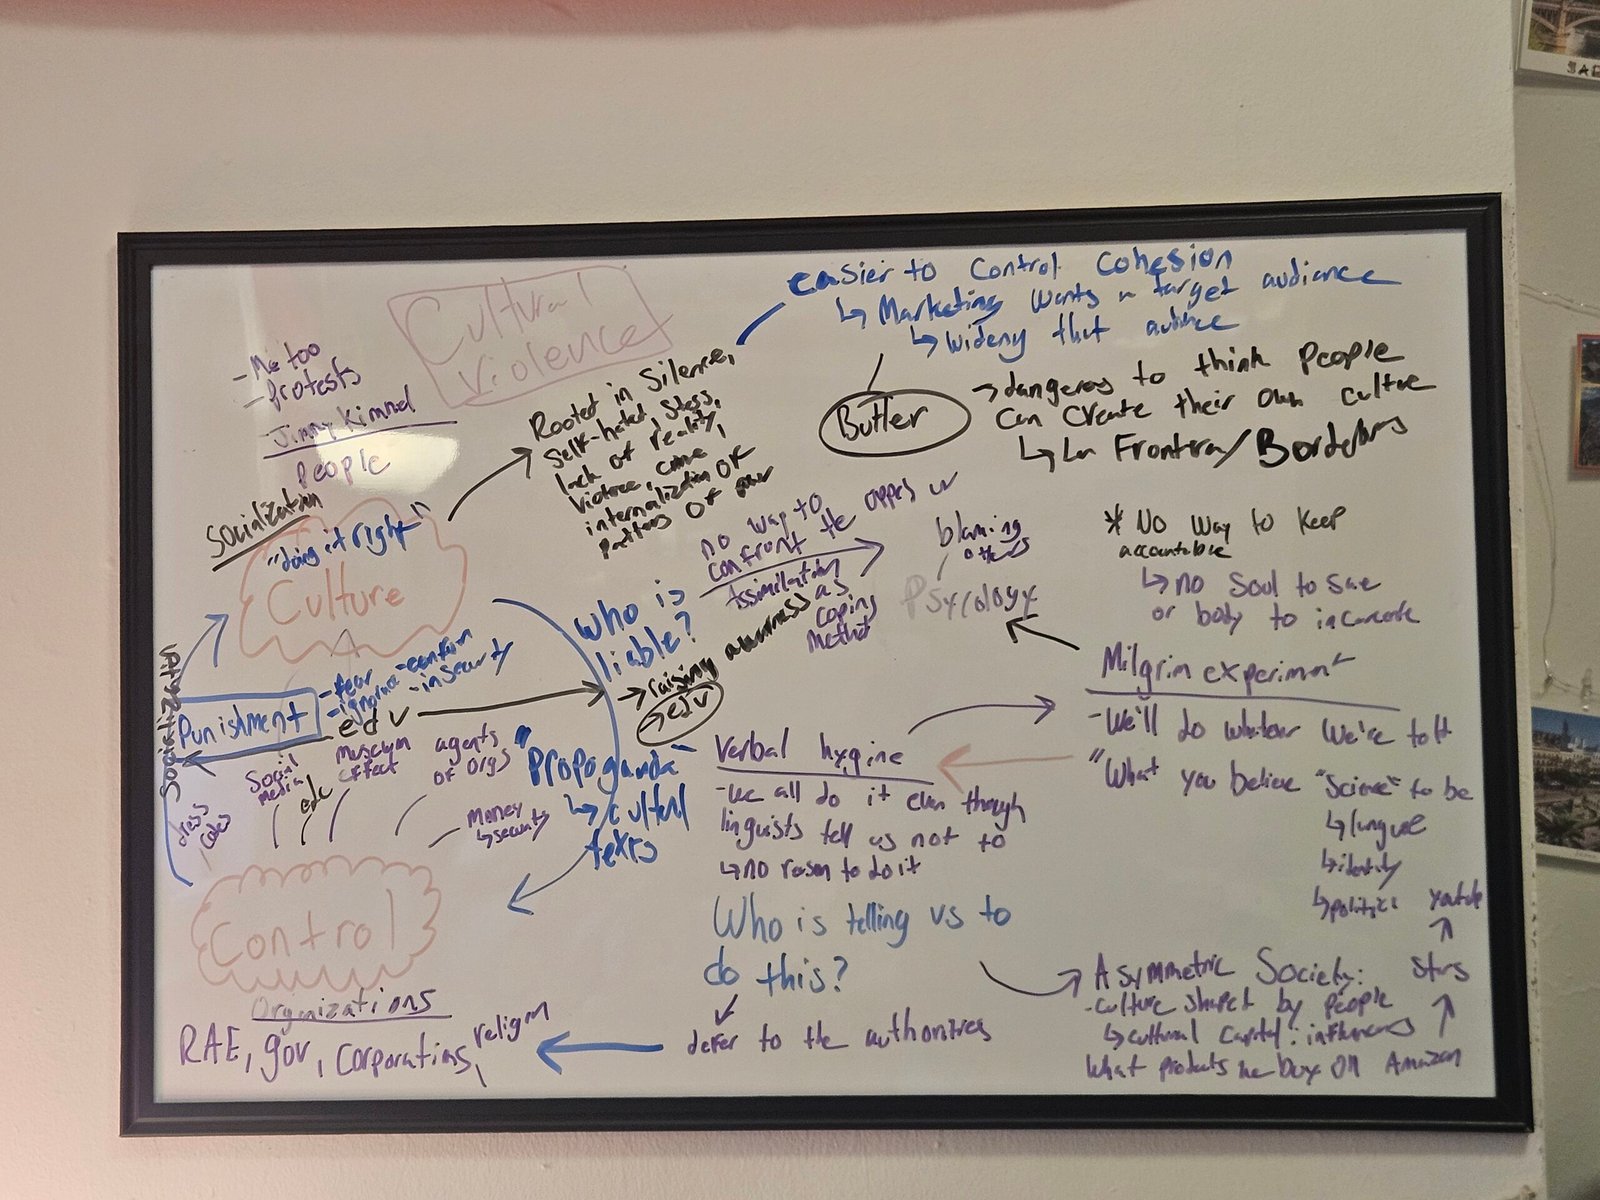 Cultural
Violence
- Me too
- protests
Jimmy Kimmel
People
Socialization
"doing it right"
Culture
Rooted in Silence,
self-hated, stess,
lack of reality,
violence, crime
internalization OF
pattens OF
easier to control cohesion
↳ Marketing wants a target audiance
↳ wideny that
Butler
→ dangeros to think people
can create their own culture
↳ La Frontera/Borderlans
no way to
confront the oppes
Assimilation
as
coping
method
blaming
others
Psycology
* No way to keep
accountable
↳ no soul to sae
or body to incarcate
Who is
liable?
→ raising awarness
→ edu
Societization
Punishment
- fear
- ignornace
- confom
- insecurity
edu
museum
effect
agents
of orgs
Social
media
edu
dress
codes
Money
↳ security
"Propoganda
↳ cultul
texts
Verbal hygine
- we all do it even though
linguists tell us not to
↳ no reason to do it
Milgrim experiment
- We'll do whatever we're told
"What you believe "Science" to be
↳ language
↳ identity
↳ politics
Who is telling us to
do this?
defer to the authorities
Asymmetric Society:
- culture shaped by people
↳ cultural capital: influencers
What products we buy on Amazon
Control
Organizations
RAE, gov, corporations,
religion